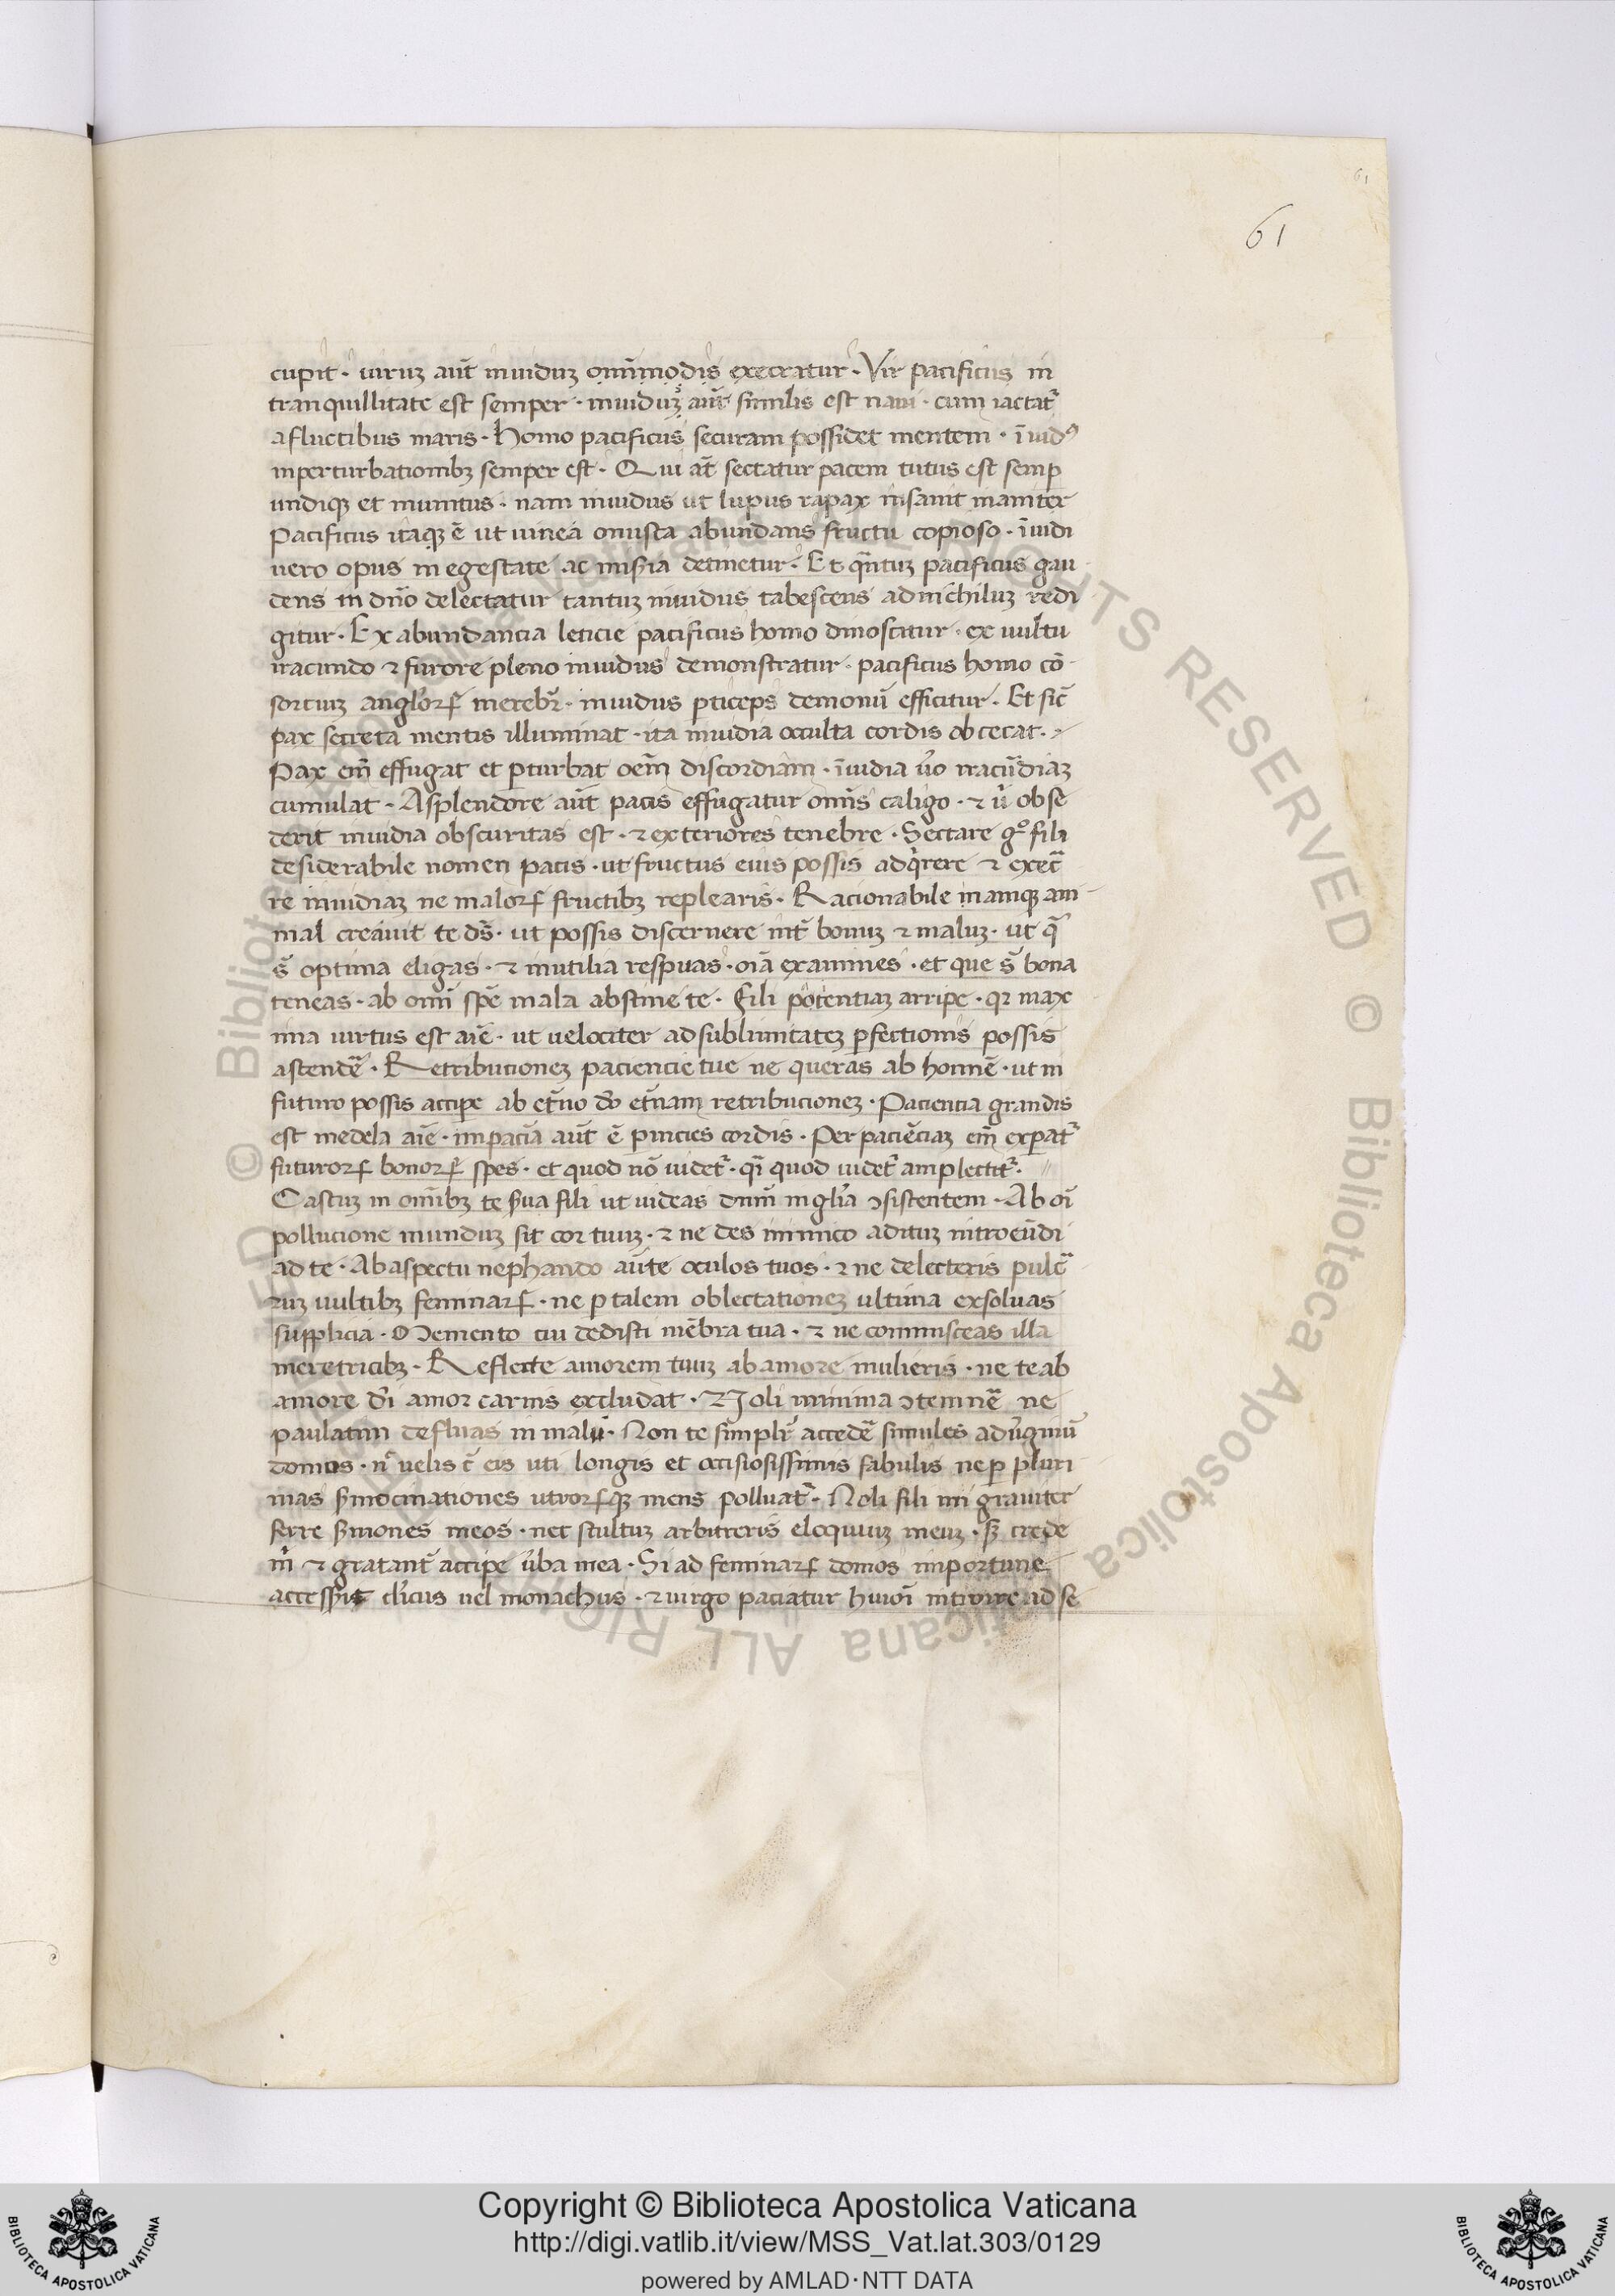 61
61
cupit · uirum aūt inuidum omīmodis execratur · Vir pacificus in
tranquillitate est semper · inuiduꝫ aūt similis est naui · cum iactat᷑
a fluctibus maris · Homo pacificus securam possidet mentem · īuidꝰ
in perturbationibꝫ semper est · Qui aūt sectatur pacem tutus est semꝑ
undiqꝫ et munitus · nam inuidus ut lupus rapax insanit inaniter
Pacificus itaqꝫ ē ut uinea onusta abundans fructu copioso · īuidi
uero opus in egestate ac mis̄ia detinetur · Et qn̄tuꝫ pacificus gau
dens in dn̄o delectatur tantuꝫ inuidus tabescens ad nichiluꝫ redi
gitur · Ex abundancia leticie pacificus homo dinoscitur · ex uultu
iracundo ⁊ furore pleno inuidus demonstratur · pacificus homo cō
sortiuꝫ angl̄oꝝ merebr̄ · inuidus ꝑticeps demonū efficitur · Et sic̄
pax secreta mentis illuminat · ita inuidia occulta cordis obcecat ·
Pax em̄ effugat et ꝑturbat oēm discordiam · īuidia ūo iracūdiaꝫ
cumulat · A splendore aūt pacis effugatur omīs caligo · ⁊ ū obse
derit inuidia obscuritas est · ⁊ exteriores tenebre · Sectare gͦ fili
desiderabile nomen pacis · ut fructus eius possis adqͥrere ⁊ execͣ
re inuidiaꝫ ne maloꝝ fructibꝫ replearis · Racionabile in amqꝫ ani
mal creauit te ds̄ · ut possis discernere int̄ bonuꝫ ⁊ maluꝫ · ut qͣ
s̄ optima eligas · ⁊ inutilia respuas · oīa examines · et que s̄ bona
teneas · ab omī spē mala abstine te · Fili potentiaꝫ arripe · qꝛ max
ima uirtus est aīe · ut uelociter ad sublimitateꝫ ꝑfectionis possis
ascendē · Retributioneꝫ paciencie tue ne queras ab homīe · ut in
futuro possis accipe ab et̄no dō et̄nam retribucioneꝫ · Paciencia grandis
est medela aīe · impacīa aūt ē ꝑnicies cordis · Per paciēciaꝫ em̄ expat᷑
futuroꝝ bonoꝝ spes · et quod nō uidet᷑ · qͣi quod uidet᷑ amplectit᷑ ·
Castuꝫ in omībꝫ te s̄ua fili ut uideas dnm̄ in gl̄ia ↄsistentem · Ab oī
pollucione munduꝫ sit cor tuuꝫ · ⁊ ne des inimico adituꝫ introeūdi
ad te · Ab aspectu nephando aūte oculos tuos · ⁊ ne delecteris pulcͣ
ruꝫ uultibꝫ feminaꝝ · ne ꝑ talem oblectationeꝫ ultima exsoluas
supplicia · Memento cui dedisti mēbra tua · ⁊ ne commisceas illa
meretricibꝫ · Reflecte amorem tuuꝫ ab amore mulieris · ne te ab
amore dī amor carnis excludat · Noli minima ↄtemnē ne
paulatim defluas in malū · Non te simplr̄ accedē simules ad ūginū
domos · n̄ uelis c̄ eis uti longis et occisiosissimis fabulis ne ꝑ pluri
mas s̄mocinationes utroꝝqꝫ mens polluat᷑ · Noli fili mi grauiter
ferre s̄mones meos · nec stultuꝫ arbitreris eloquiuꝫ meuꝫ · sꝫ crede
m̄ ⁊ gratant̄ accipe ūba mea · Si ad feminaꝝ domos importune
access̄it cl̄icus uel monachus · ⁊ uirgo paciatur huiōi introire ad se
Copyright © Biblioteca Apostolica Vaticana
http://digi.vatlib.it/view/MSS_Vat.lat.303/0129
powered by AMLAD·NTT DATA